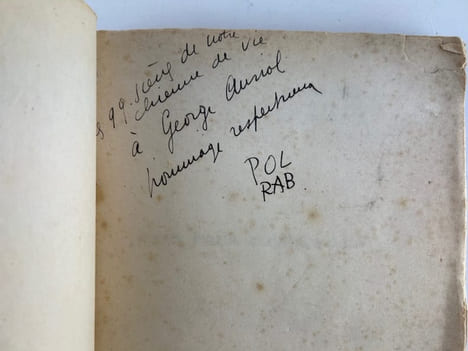 99 scènes de notre
chienne de vie
à George Auriol
hommage respectueux
POL
RAB.